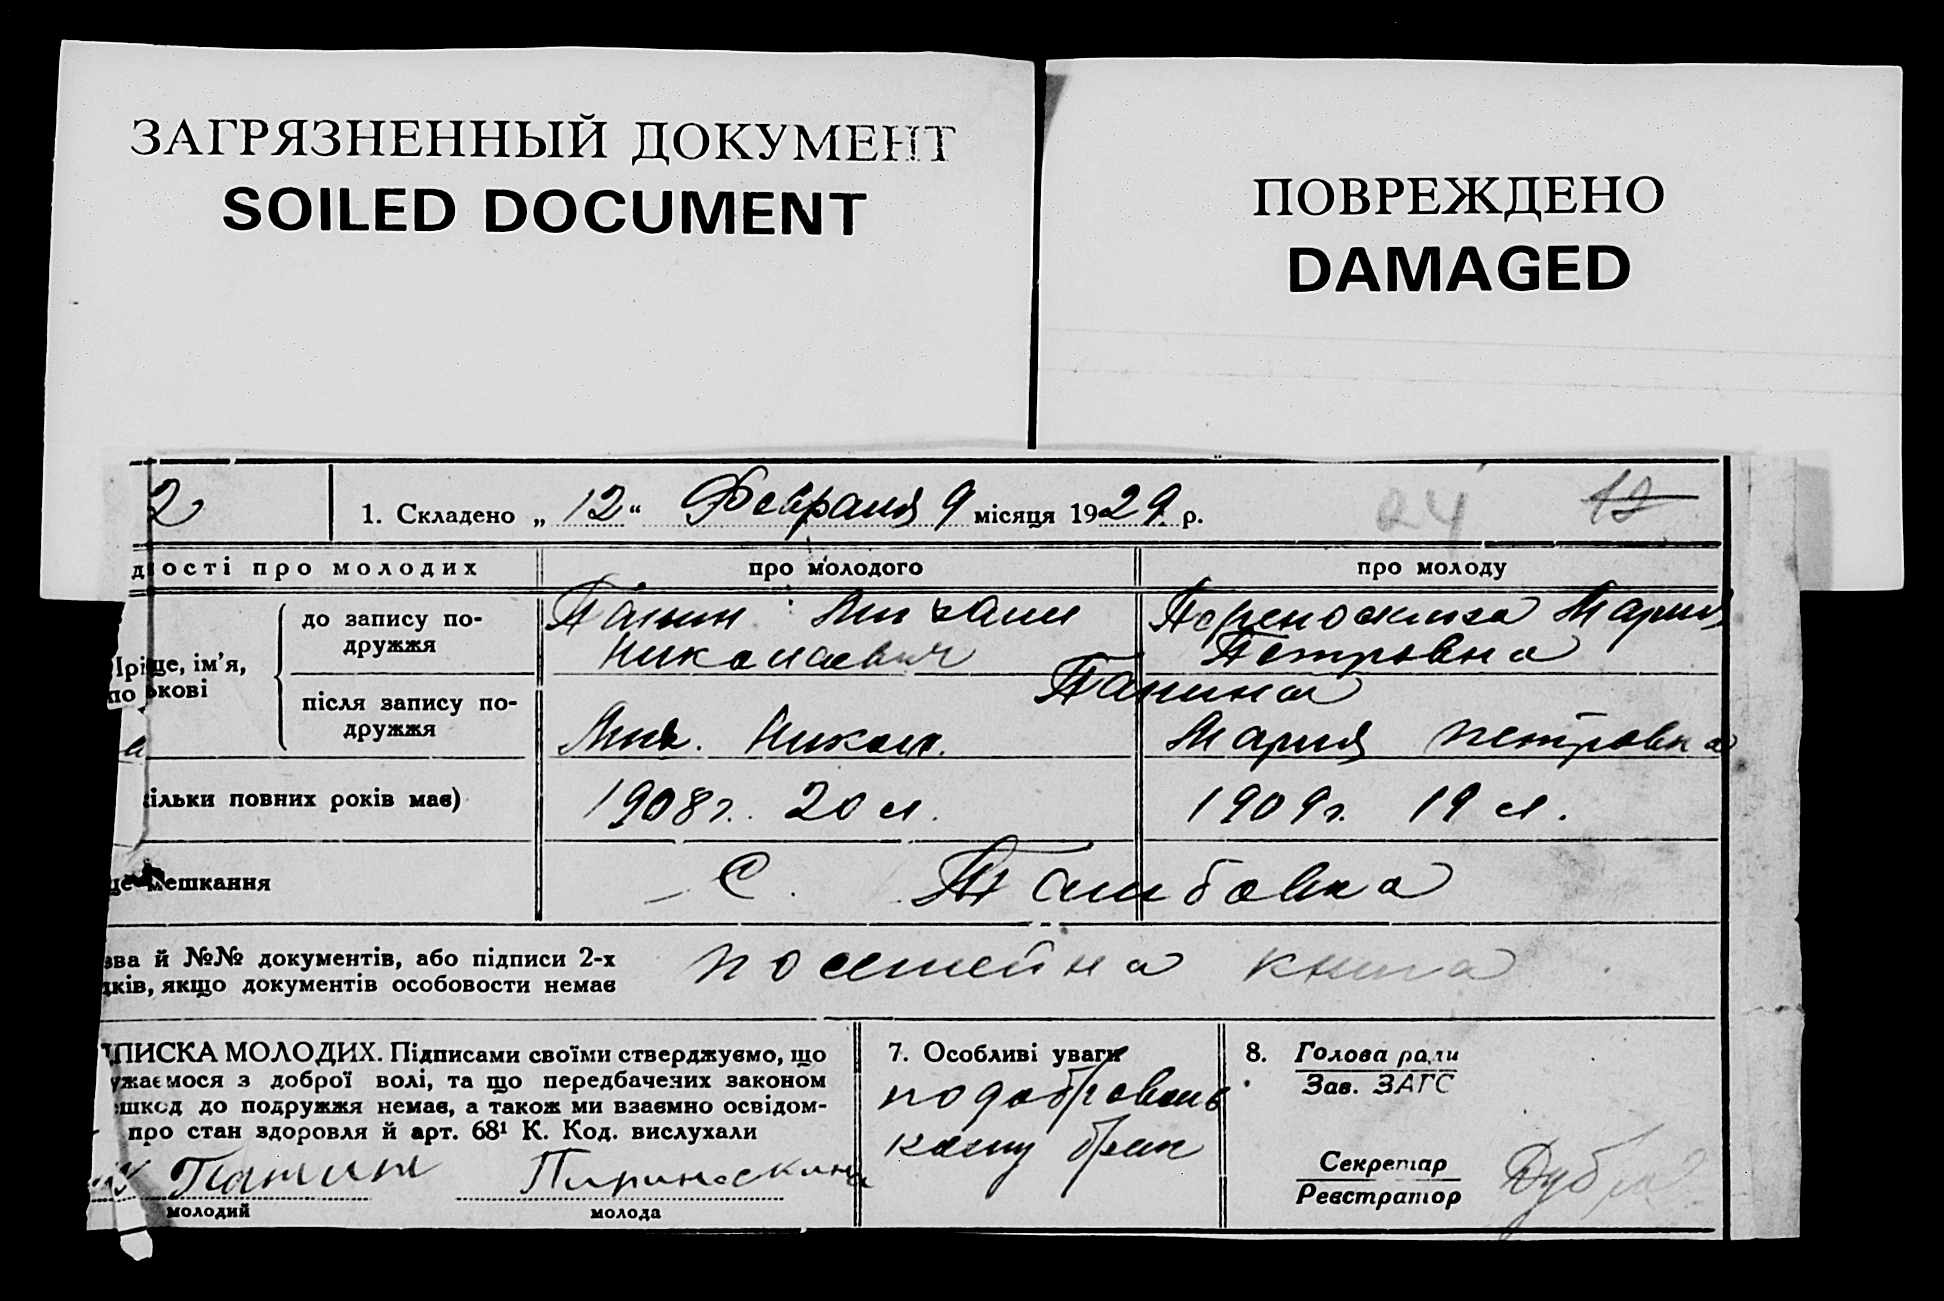 ЗАГРЯЗНЕННЫЙ ДОКУМЕНТ
SOILED DOCUMENT
ПОВРЕЖДЕНО
DAMAGED
2
1. Складено „ 12 “ Февраля 9 місяця 1929 р.
24
12
дності про молодих
про молодого
про молоду
до запису по-
дружжя
Прі ще, ім’я,
по ькові
після запису по-
дружжя
Панин Михаил
Николаевич
Мих. Никол.
Мария
Петровна
Панина
Мария Петровна
ільки повних років має)
1908 г. 20 л.
1909 г. 19 л.
це мешкання
С. Тамбовка
зва й №№ документів, або підписи 2-х
дків, якщо документів особовости немає
посемейна книга
ПИСКА МОЛОДИХ. Підписами своїми стверджуємо, що
ужаємося з доброї волі, та що передбачених законом
ешкод до подружжя немає, а також ми взаємно освідом-
про стан здоровля й арт. 68¹ К. Код. вислухали
Панин
молодий
молода
7. Особливі уваги
брак
8. Голова ради
Зав. ЗАГС
Секретар
Реєстратор